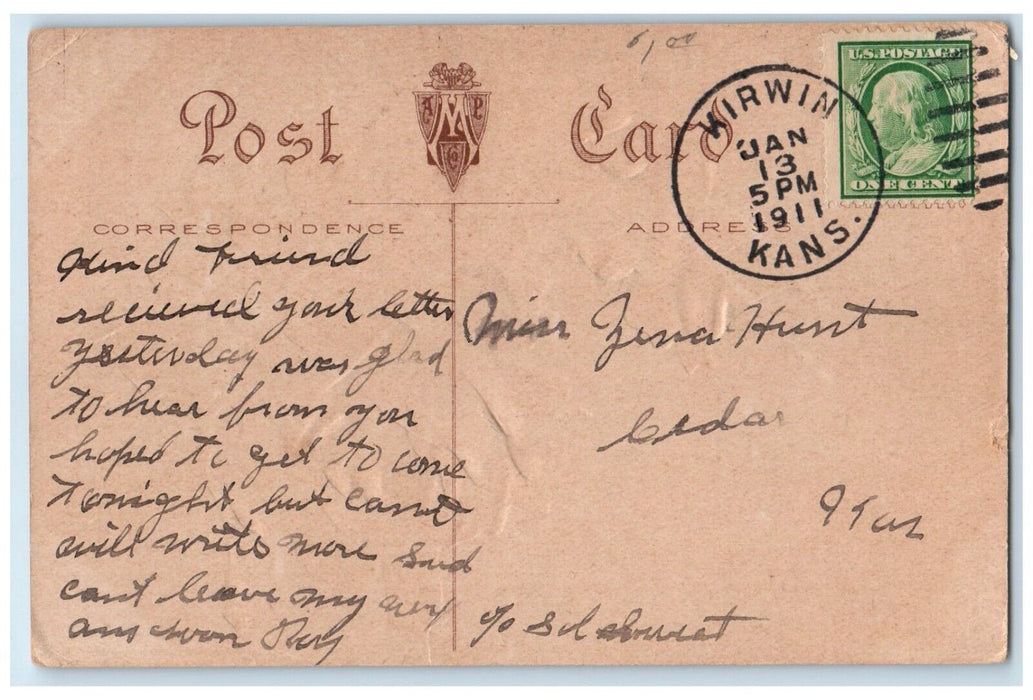 6/00
Post Card
A M P Co
KIRWIN
JAN
13
5 PM
1911
KANS.
U.S. POSTAGE
ONE CENT
CORRESPONDENCE
ADDRESS
Kind Friend
recieved your letter
yesterday was glad
to hear from you
hoped to get to come
tonight but cant
will write more
cant leave my
ans soon Roy
Miss Zena Hunt
Cedar
Kan
c/o